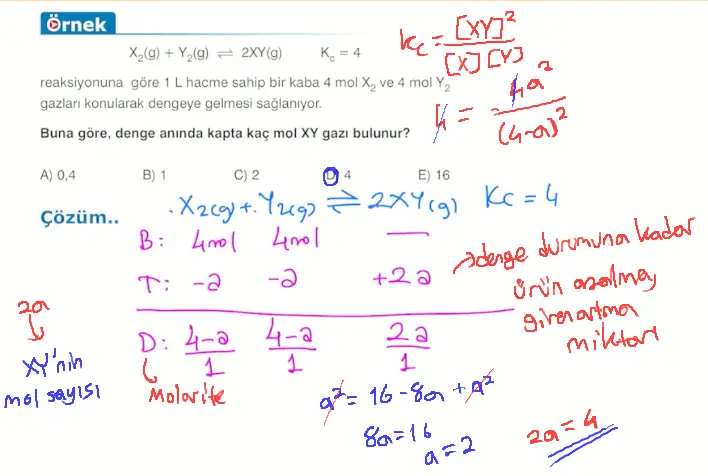 Örnek
X₂(g) + Y₂(g) ⇌ 2XY(g) K꜀ = 4
reaksiyonuna göre 1 L hacme sahip bir kaba 4 mol X₂ ve 4 mol Y₂
gazları konularak dengeye gelmesi sağlanıyor.
Buna göre, denge anında kapta kaç mol XY gazı bulunur?
A) 0,4 B) 1 C) 2 D) 4 E) 16
Kc = [XY]² / [X][Y]
4 = 4a² / (4-a)²
Çözüm..
X₂(g) + Y₂(g) ⇌ 2XY(g) Kc = 4
B: 4mol 4mol —
T: -a -a +2a
D: 4-a/1 4-a/1 2a/1
Molarite
→denge durumuna kadar
ürün azalma,
giren artma
miktarı
2a
XY'nin
mol sayısı
a² = 16 - 8a + a²
8a = 16
a = 2
2a = 4